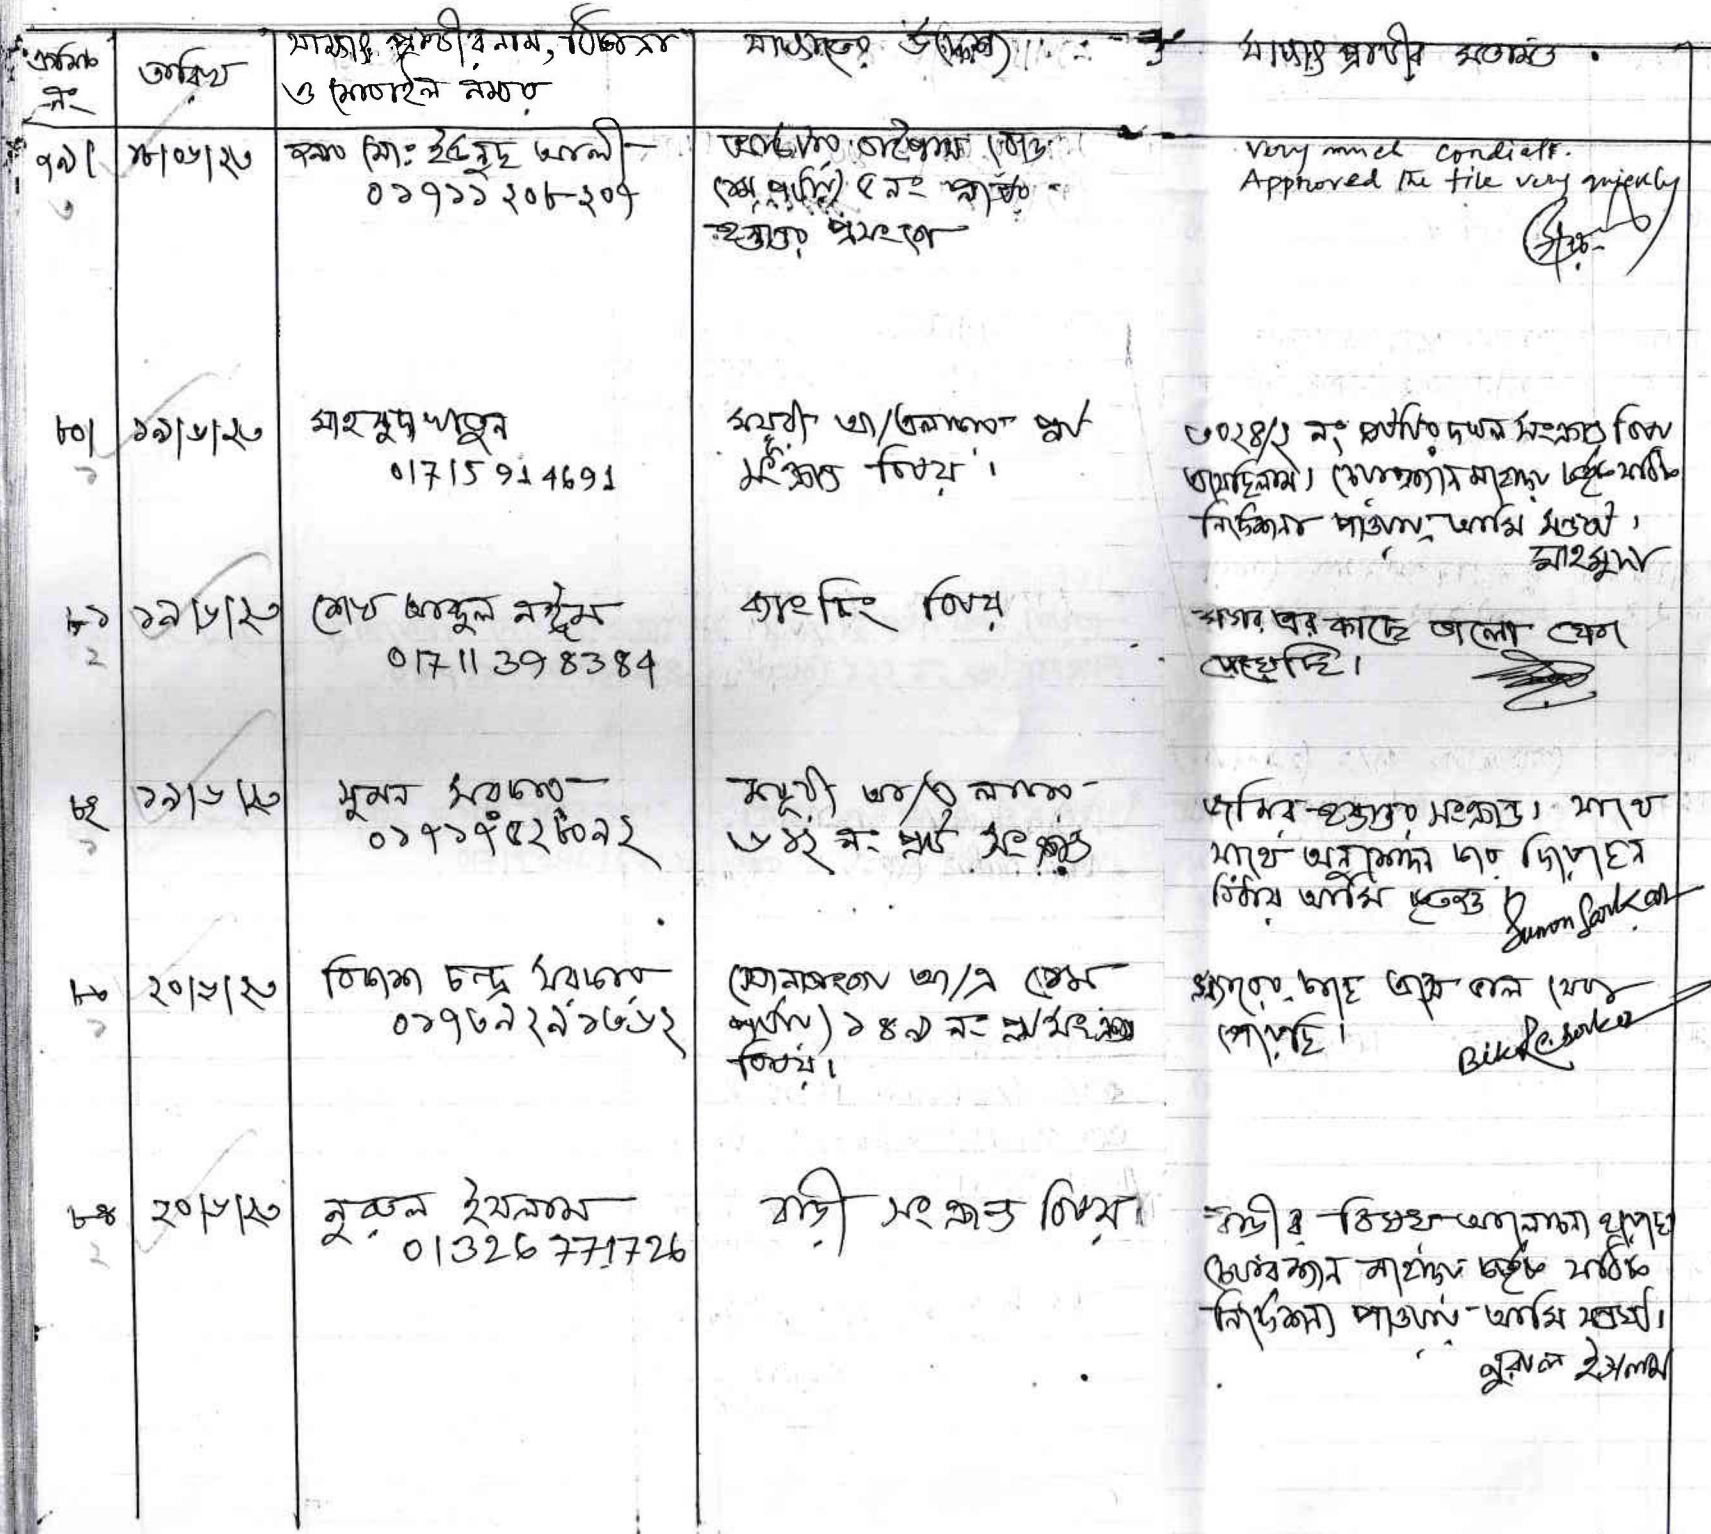 ক্রমিক নং
তারিখ
সাক্ষাৎ প্রার্থীর নাম, ঠিকানা
ও মোবাইল নম্বর
সাক্ষাতের উদ্দেশ্য
সাক্ষাৎ প্রার্থীর মতামত
৭৯। ১৮/০৬/২৩
জনাব মোঃ ইউনুছ আলী
০১৭১১২০৮২০৭
৫ নং প্লটের
হস্তান্তর প্রসংগে
Very much cordially.
Approved the file very quickly
৮০। ১৯/৬/২৩
মাহমুদা খাতুন
01715914691
ময়ূরী আ/এলাকার প্লট
সংক্রান্ত বিষয়।
৩০২৪/২ নং প্লটটির দখল সংক্রান্ত বিষয়
এসেছিলাম। চেয়ারম্যান মহোদয় কর্তৃক সঠিক
নির্দেশনা পাওয়ায় আমি সন্তুষ্ট।
মাহমুদা
৮১ ১৯/৬/২৩
শেখ আব্দুল নঈম
01711398384
বিষয়
স্যার এর কাছে ভালো সেবা
পেয়েছি।
৮২ ১৯/৬/২৩
সুমন সরকার
০১৭১৭৫২৮০৭২
ময়ূরী আ/এলাকার
৬১২ নং প্লট সংক্রান্ত
জমির হস্তান্তর সংক্রান্ত। সাথে
সাথে অনুমোদন করে দিয়েছেন
বিধায় আমি কৃতজ্ঞ।
Sumon Sarkar
৮৩ ২০/৬/২৩
বিকাশ চন্দ্র সরকার
০১৭৩৯২৯১৩৬২
সোনাডাংগা আ/এ (২য়
পর্যায়) ১৪৯ নং প্লট সংক্রান্ত
বিষয়।
স্যারের কাছে এসে ভাল সেবা
পেয়েছি।
৮৪ ২০/৬/২৩
নুরুল ইসলাম
01326771726
বাড়ী সংক্রান্ত বিষয়।
বাড়ীর বিষয়ে আলোচনা হয়েছে
চেয়ারম্যান মহোদয় কর্তৃক সঠিক
নির্দেশনা পাওয়ায় আমি সন্তুষ্ট।
নুরুল ইসলাম